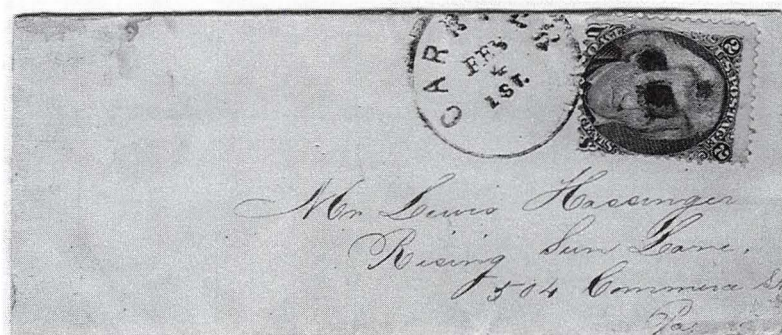 CARRIER
FEB
4
1 ST.
U S POSTAGE
2 2
Mr Lewis Hassinger
Rising Sun Lane,
504 Commerce St